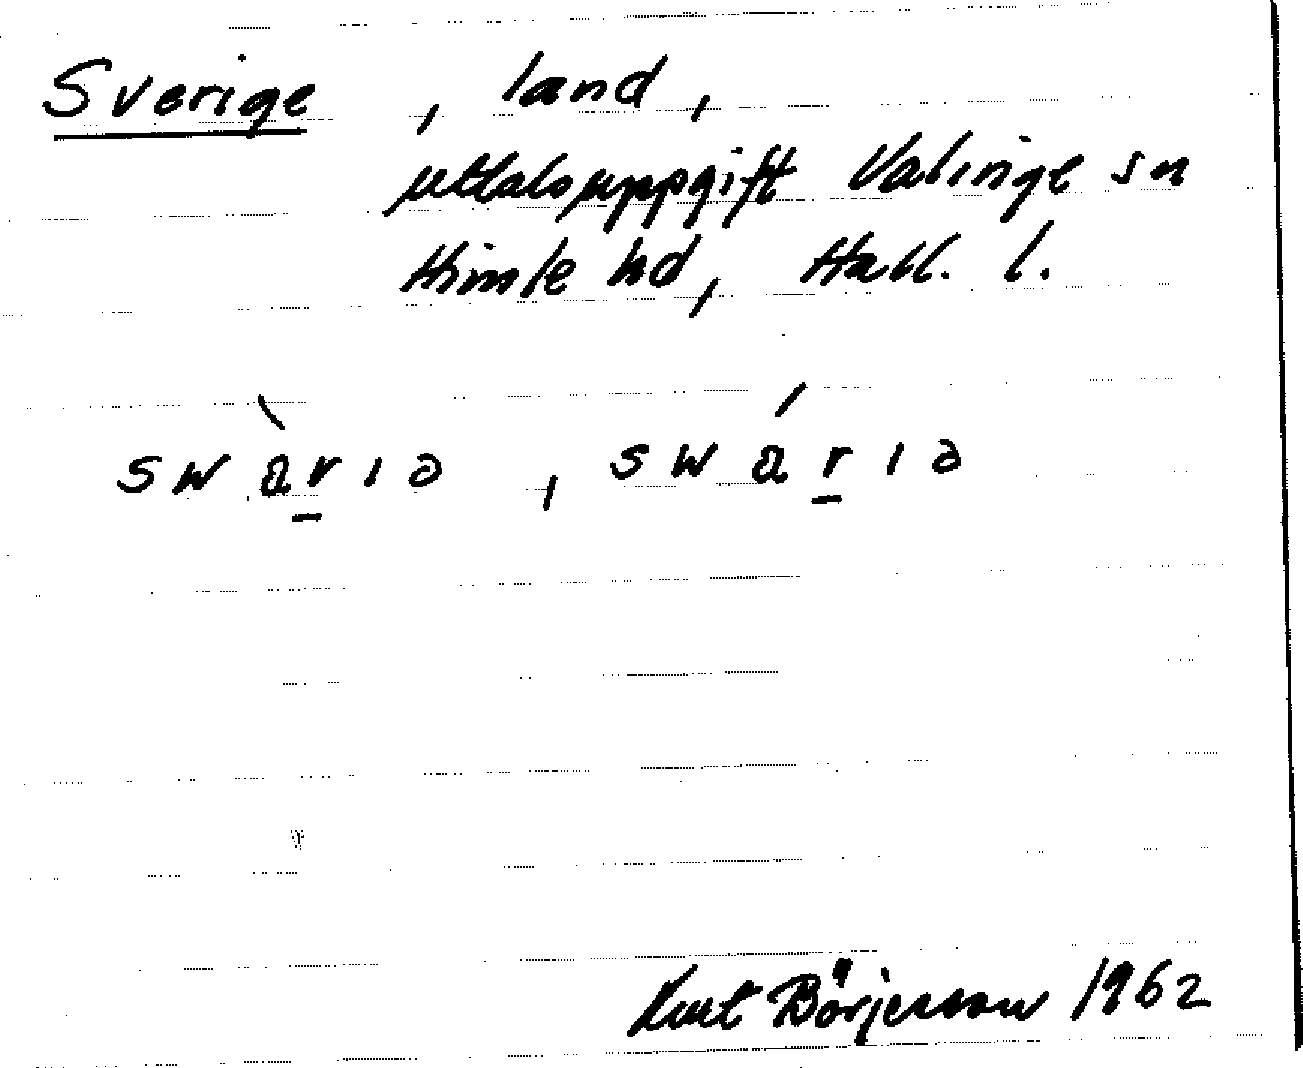 Sverige, land,
uttalsuppgift Valinge sn
Himle hd, Hall. l.
swàrıə, swárıə
Kurt Börjesson 1962